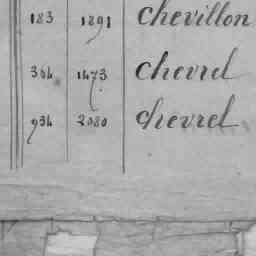 183 1891 Chevillon
364 1473 Chevrel
934 2080 Chevrel